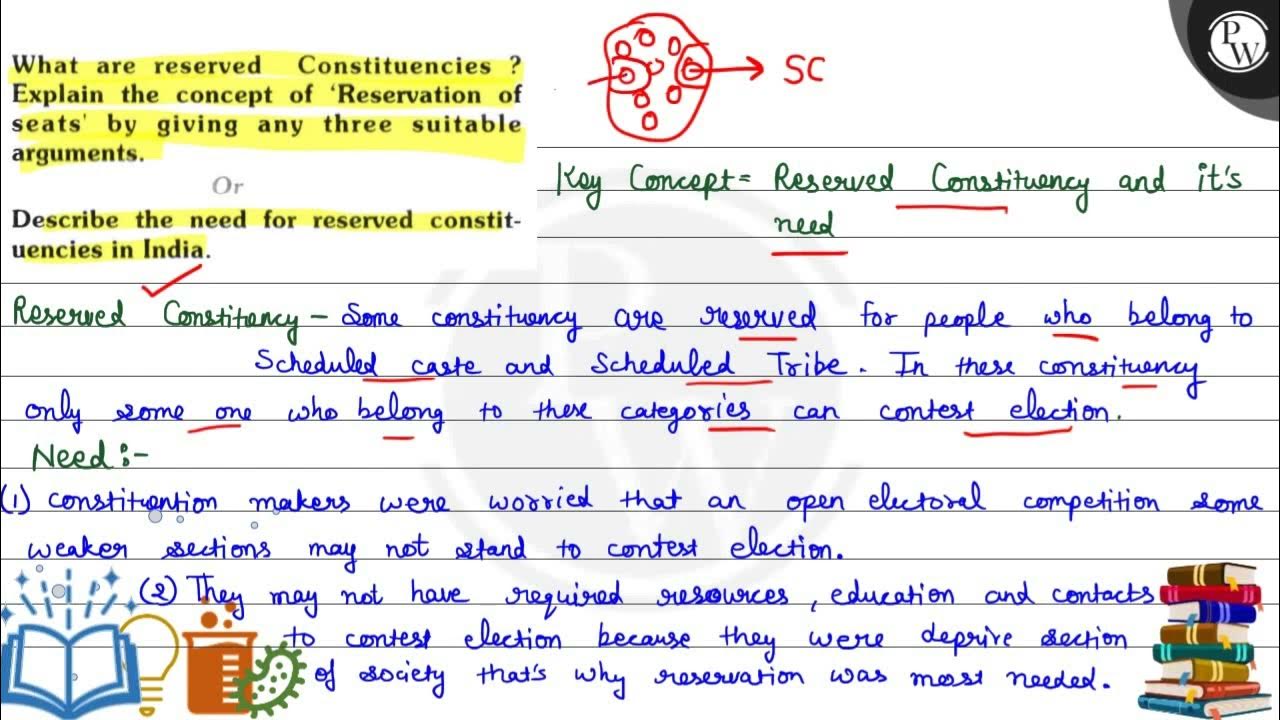 What are reserved Constituencies ?
Explain the concept of 'Reservation of
seats' by giving any three suitable
arguments.
Or
Describe the need for reserved constit-
uencies in India.
SC
PW
Key Concept = Reserved Constituency and it's
need
Reserved Constitancy - Some constituency are reserved for people who belong to
Scheduled caste and Scheduled Tribe. In these constituency
only some one who belong to these categories can contest election.
Need :-
(1) constituention makers were worried that an open electoral competition some
weaker sections may not stand to contest election.
(2) They may not have required resources, education and contacts
to contest election because they were deprive section
of society that's why reservation was most needed.